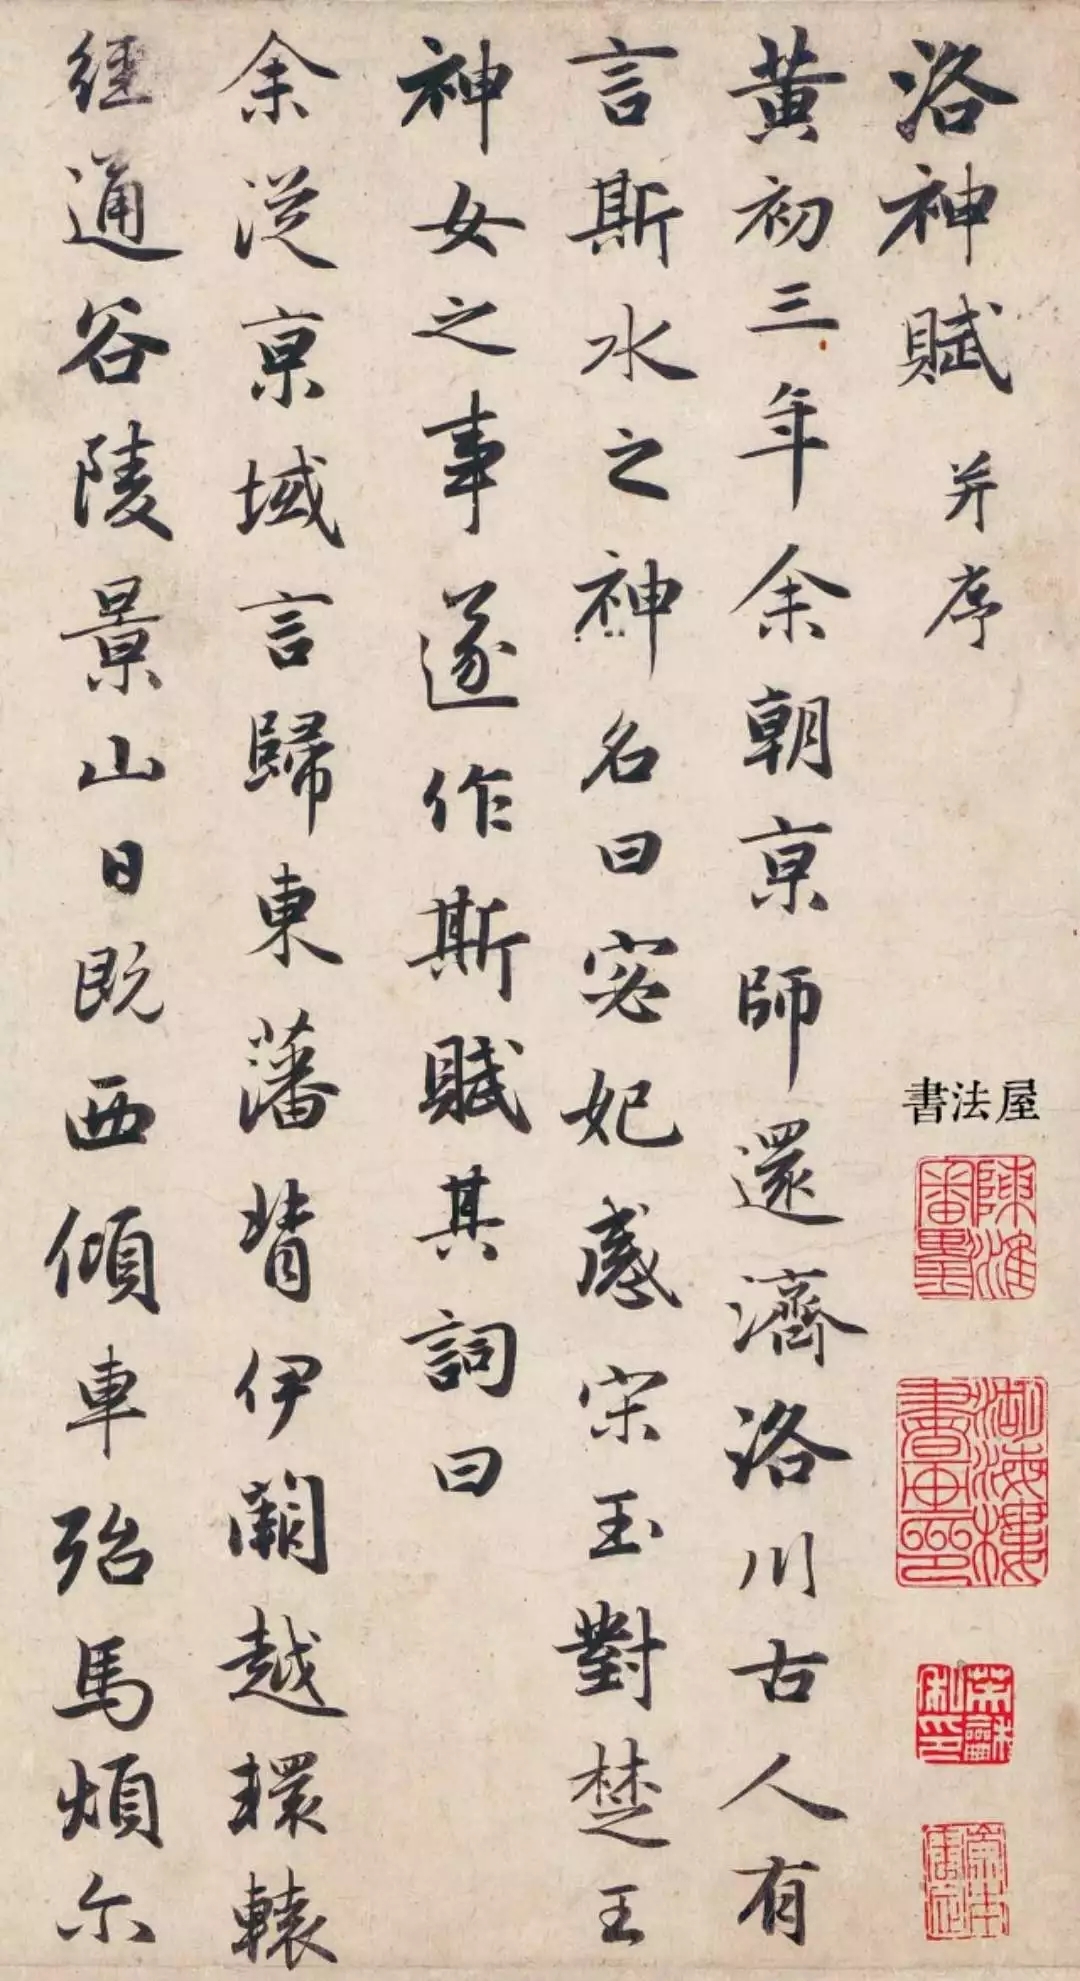 洛神賦 并序
黄初三年余朝京師還濟洛川古人有
言斯水之神名曰宓妃感宋玉對楚王
神女之事遂作斯賦其詞曰
余從京域言歸東藩背伊闕越轘轅
經通谷陵景山日既西傾車殆馬煩尔
書法屋
陳淮審墨
湖海樓書畫印